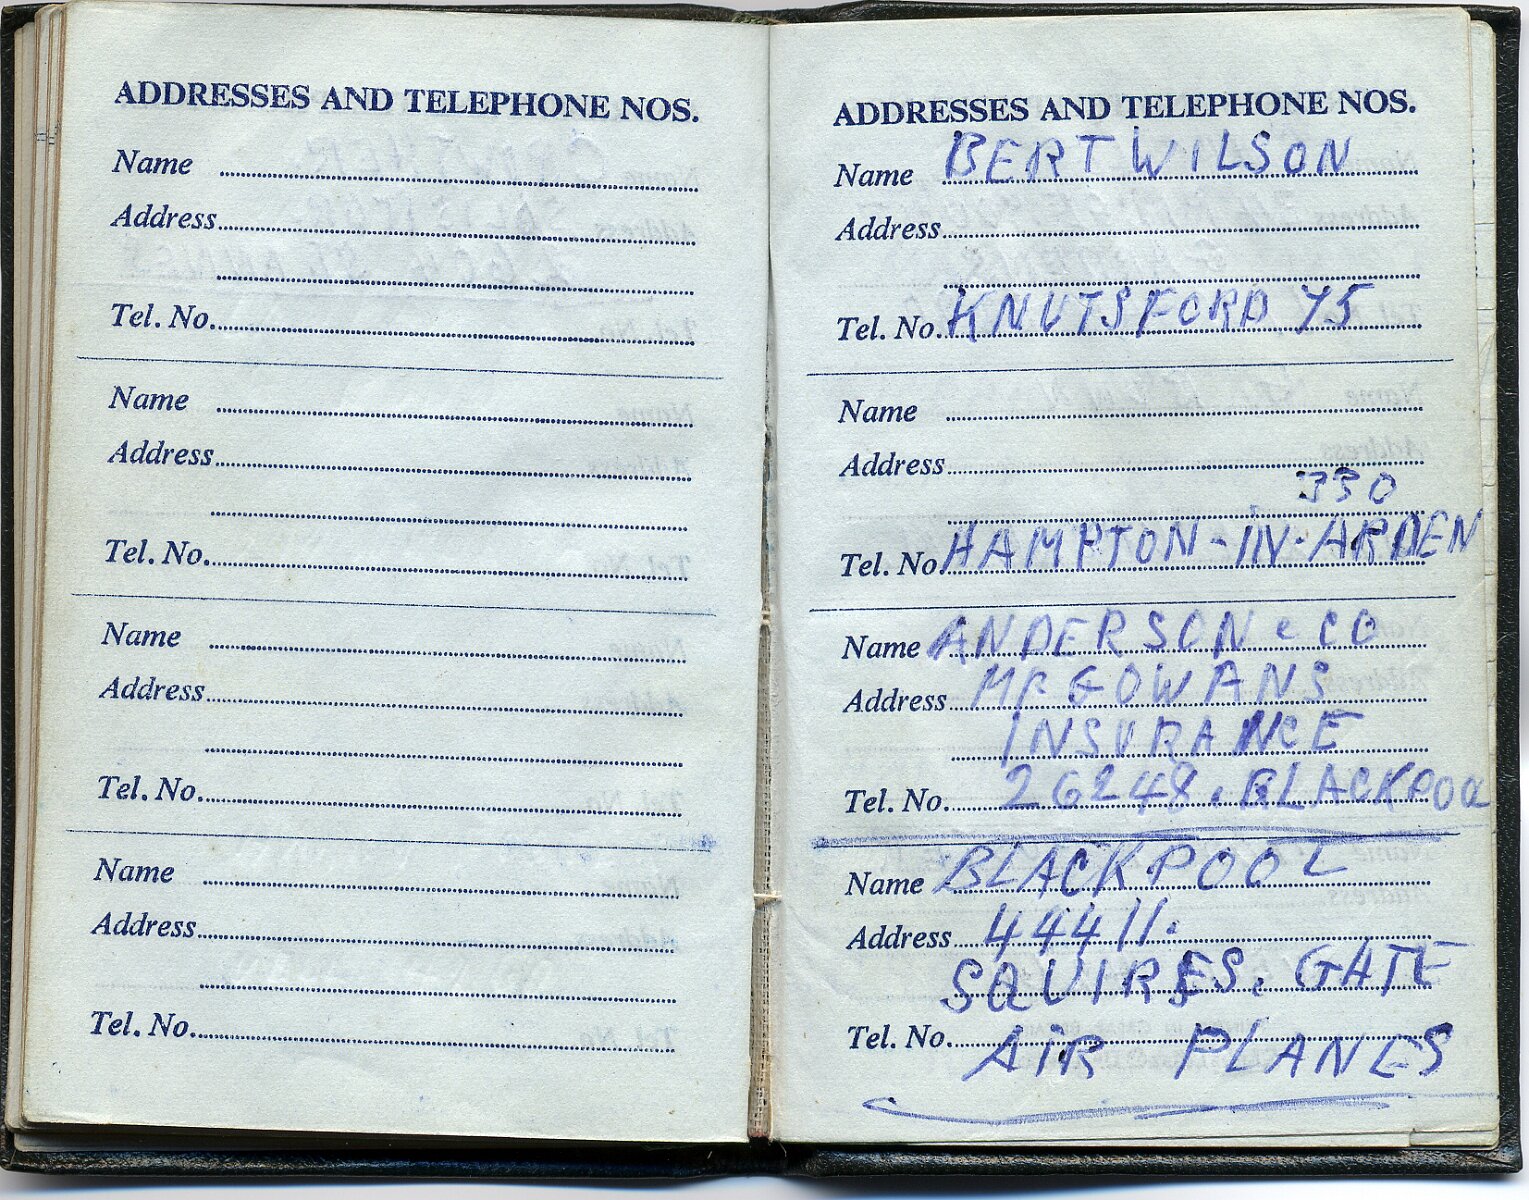 ADDRESSES AND TELEPHONE NOS.
Name
Address
Tel. No.
Name
Address
Tel. No.
Name
Address
Tel. No.
Name
Address
Tel. No.
ADDRESSES AND TELEPHONE NOS.
Name BERT WILSON
Address
Tel. No. KNUTSFORD 75
Name
Address
330
Tel. No. HAMPTON-IN-ARDEN
Name ANDERSON & CO
Address MR GOWANS
INSURANCE
Tel. No. 26248. BLACKPOOL
Name BLACKPOOL
Address 44411.
SQUIRES. GATE
Tel. No. AIR PLANES